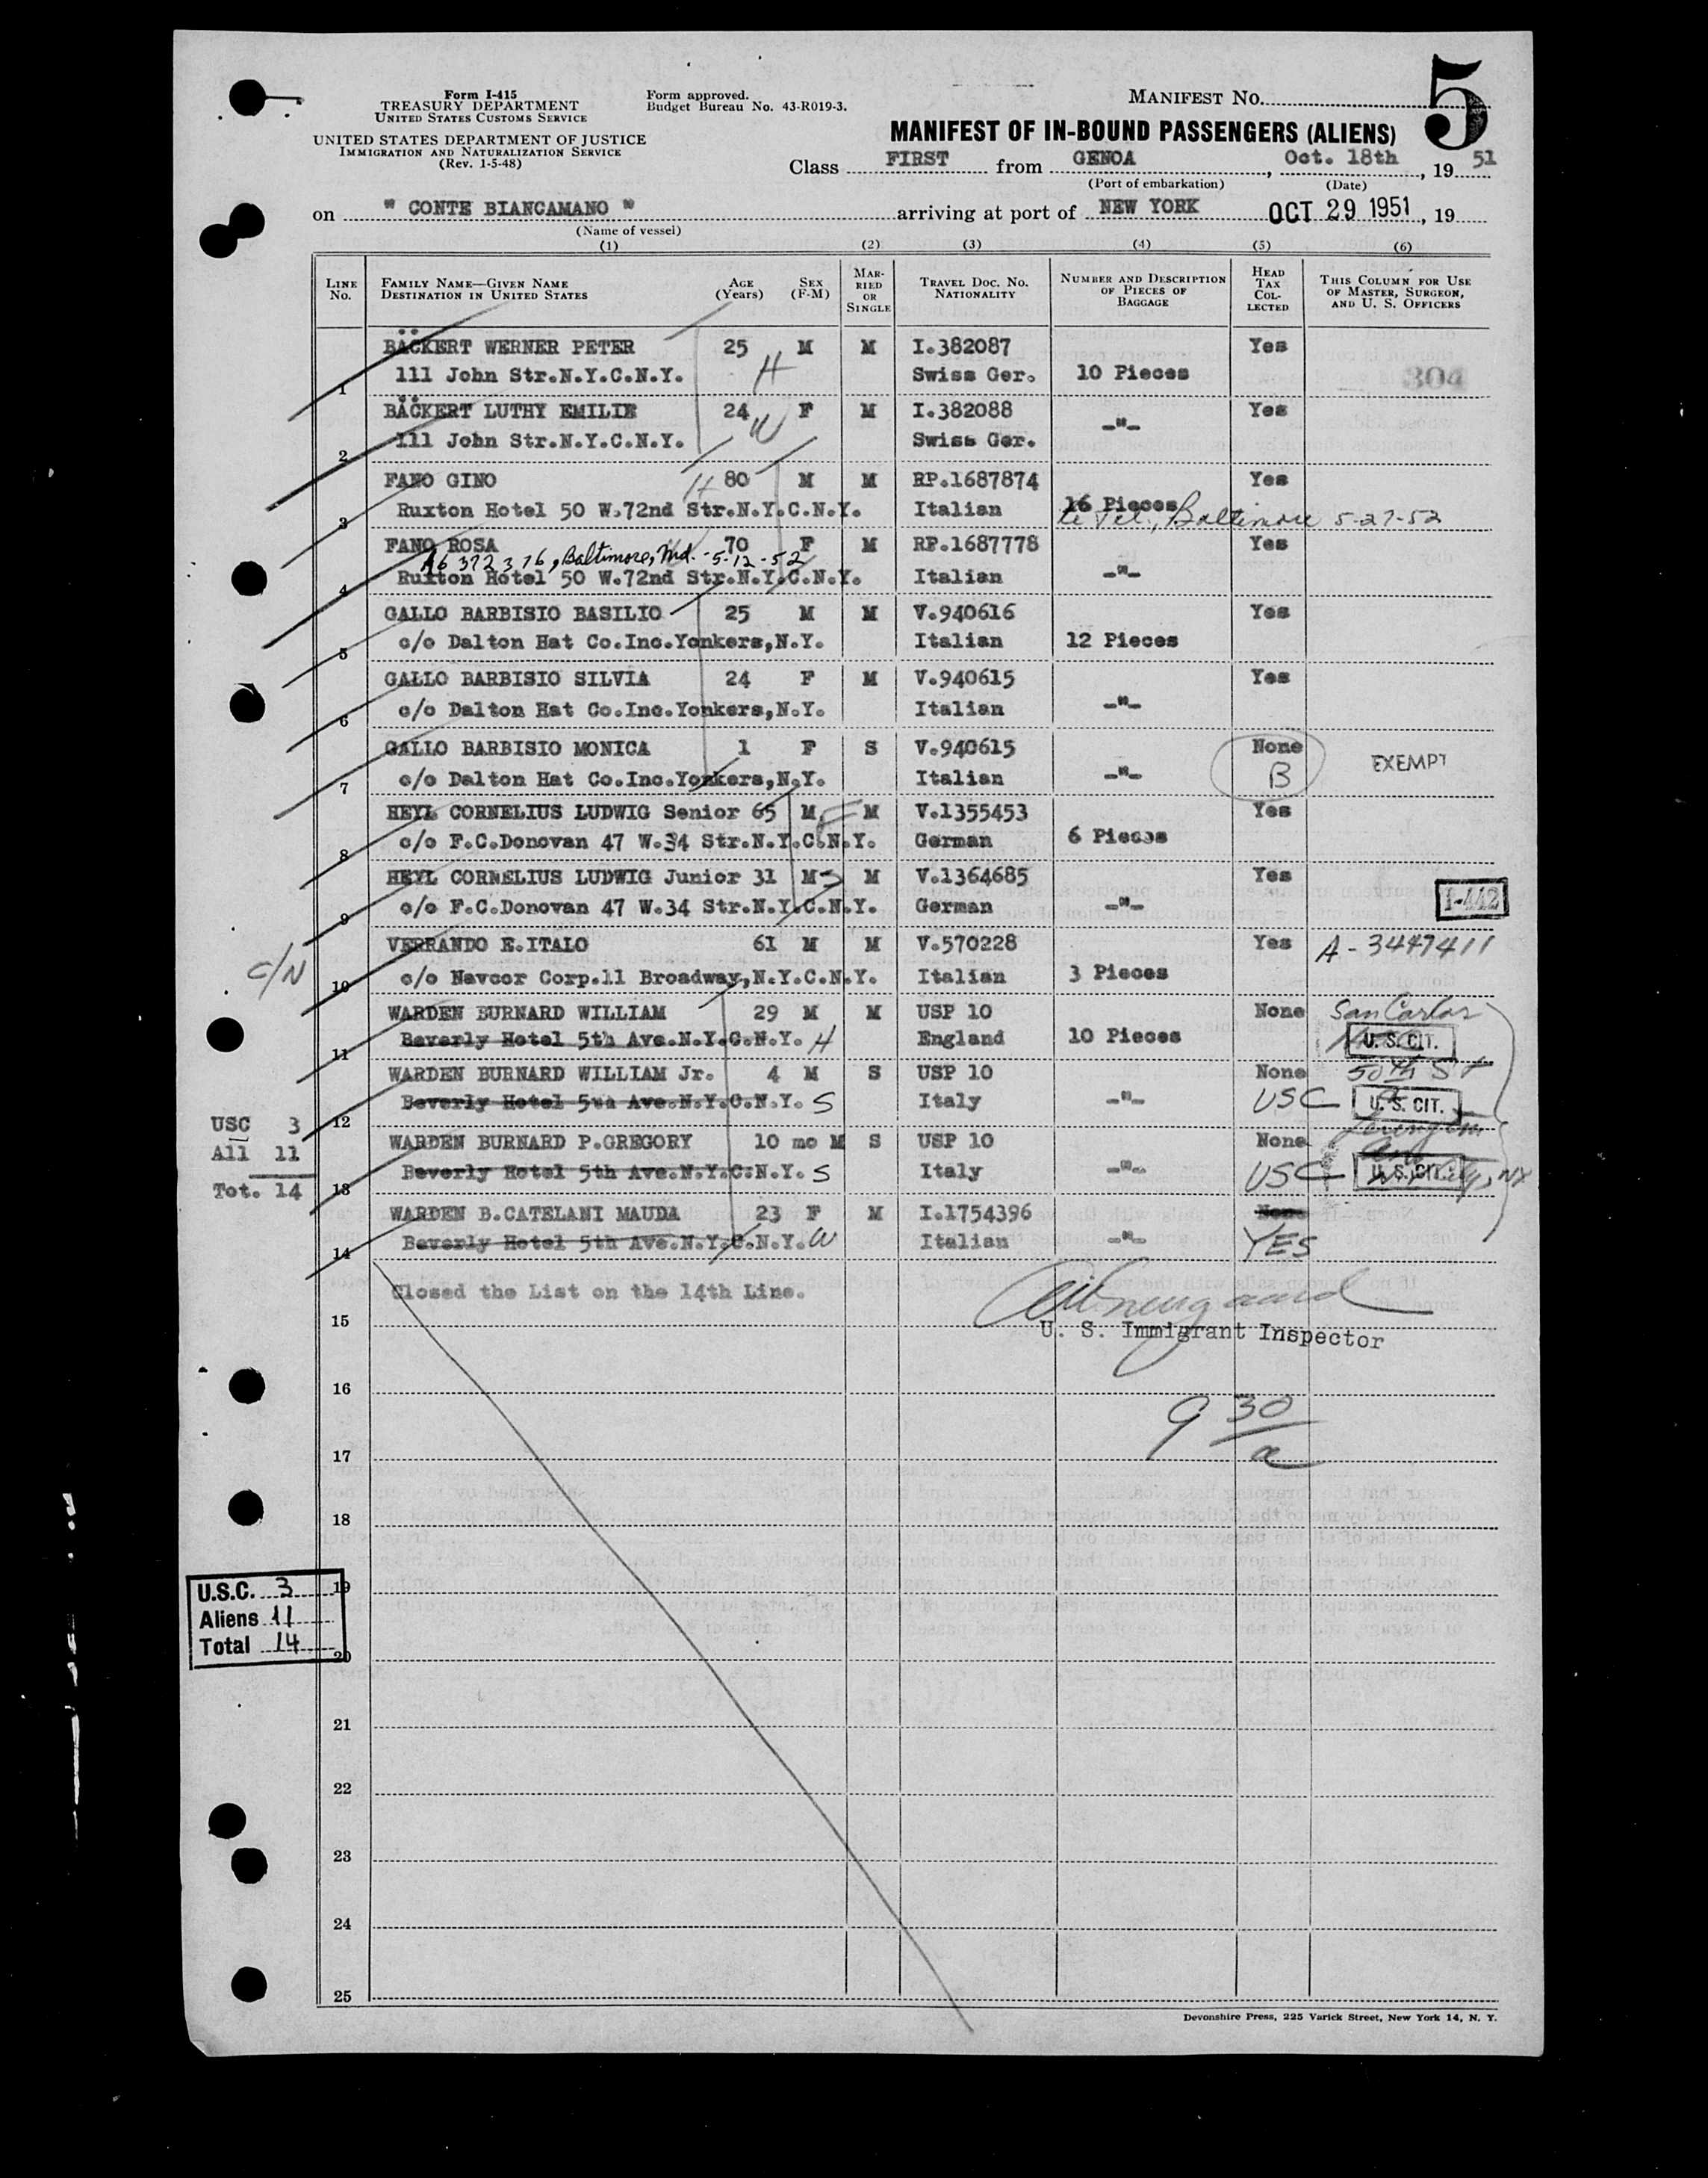 Form I-415
TREASURY DEPARTMENT
UNITED STATES CUSTOMS SERVICE
UNITED STATES DEPARTMENT OF JUSTICE
IMMIGRATION AND NATURALIZATION SERVICE
(Rev. 1-5-48)
Form approved.
Budget Bureau No. 43-R019-3.
MANIFEST No. 5
MANIFEST OF IN-BOUND PASSENGERS (ALIENS)
Class FIRST from GENOA, Oct. 18th, 19 51
(Port of embarkation) (Date)
on " CONTE BIANCAMANO " arriving at port of NEW YORK OCT 29 1951, 19
(Name of vessel)
(1) (2) (3) (4) (5) (6)
LINE No. FAMILY NAME—GIVEN NAME DESTINATION IN UNITED STATES AGE (Years) SEX (F-M) MARRIED OR SINGLE TRAVEL DOC. No. NATIONALITY NUMBER AND DESCRIPTION OF PIECES OF BAGGAGE HEAD TAX COLLECTED THIS COLUMN FOR USE OF MASTER, SURGEON, AND U. S. OFFICERS
BÄCKERT WERNER PETER 25 M M I.382087 Yes
1 111 John Str.N.Y.C.N.Y. H Swiss Ger. 10 Pieces 304
BÄCKERT LUTHY EMILIE 24 F M I.382088 Yes
2 111 John Str.N.Y.C.N.Y. W Swiss Ger. -"-
FANO GINO H 80 M M RP.1687874 Yes
3 Ruxton Hotel 50 W.72nd Str.N.Y.C.N.Y. Italian 16 Pieces
Baltimore 5-27-52
FANO ROSA 70 F M RP.1687778 Yes
A6 372 376, Baltimore, Md. - 5-12-52
4 Ruxton Hotel 50 W.72nd Str.N.Y.C.N.Y. Italian -"-
GALLO BARBISIO BASILIO 25 M M V.940616 Yes
5 c/o Dalton Hat Co.Inc.Yonkers,N.Y. Italian 12 Pieces
GALLO BARBISIO SILVIA 24 F M V.940615 Yes
6 c/o Dalton Hat Co.Inc.Yonkers,N.Y. Italian -"-
GALLO BARBISIO MONICA 1 F S V.940615 None EXEMPT
7 c/o Dalton Hat Co.Inc.Yonkers,N.Y. Italian -"- B
HEYL CORNELIUS LUDWIG Senior 65 M F M V.1355453 Yes
8 c/o F.C.Donovan 47 W.34 Str.N.Y.C.N.Y. German 6 Pieces
HEYL CORNELIUS LUDWIG Junior 31 M S M V.1364685 Yes
9 c/o F.C.Donovan 47 W.34 Str.N.Y.C.N.Y. German -"- I-442
VERRANDO E.ITALO 61 M M V.570228 Yes A-3447411
C/N 10 c/o Navcor Corp.11 Broadway,N.Y.C.N.Y. Italian 3 Pieces
WARDEN BURNARD WILLIAM 29 M M USP 10 None San Carlos
11 Beverly Hotel 5th Ave.N.Y.C.N.Y. H England 10 Pieces U. S. CIT.
WARDEN BURNARD WILLIAM Jr. 4 M S USP 10 None 50th St
12 Beverly Hotel 5th Ave.N.Y.C.N.Y. S Italy -"- USC U. S. CIT.
WARDEN BURNARD P.GREGORY 10 mo M S USP 10 None
13 Beverly Hotel 5th Ave.N.Y.C.N.Y. S Italy -"- USC U. S. CIT. NY
WARDEN B.CATELANI MAUDA 23 F M I.1754396 None
14 Beverly Hotel 5th Ave.N.Y.C.N.Y. W Italian -"- YES
USC 3
All 11
Tot. 14
Closed the List on the 14th Line.
15
U. S. Immigrant Inspector
16
9 30/a
17
18
19
20
U.S.C. 3
Aliens 11
Total 14
21
22
23
24
25
Devonshire Press, 225 Varick Street, New York 14, N. Y.